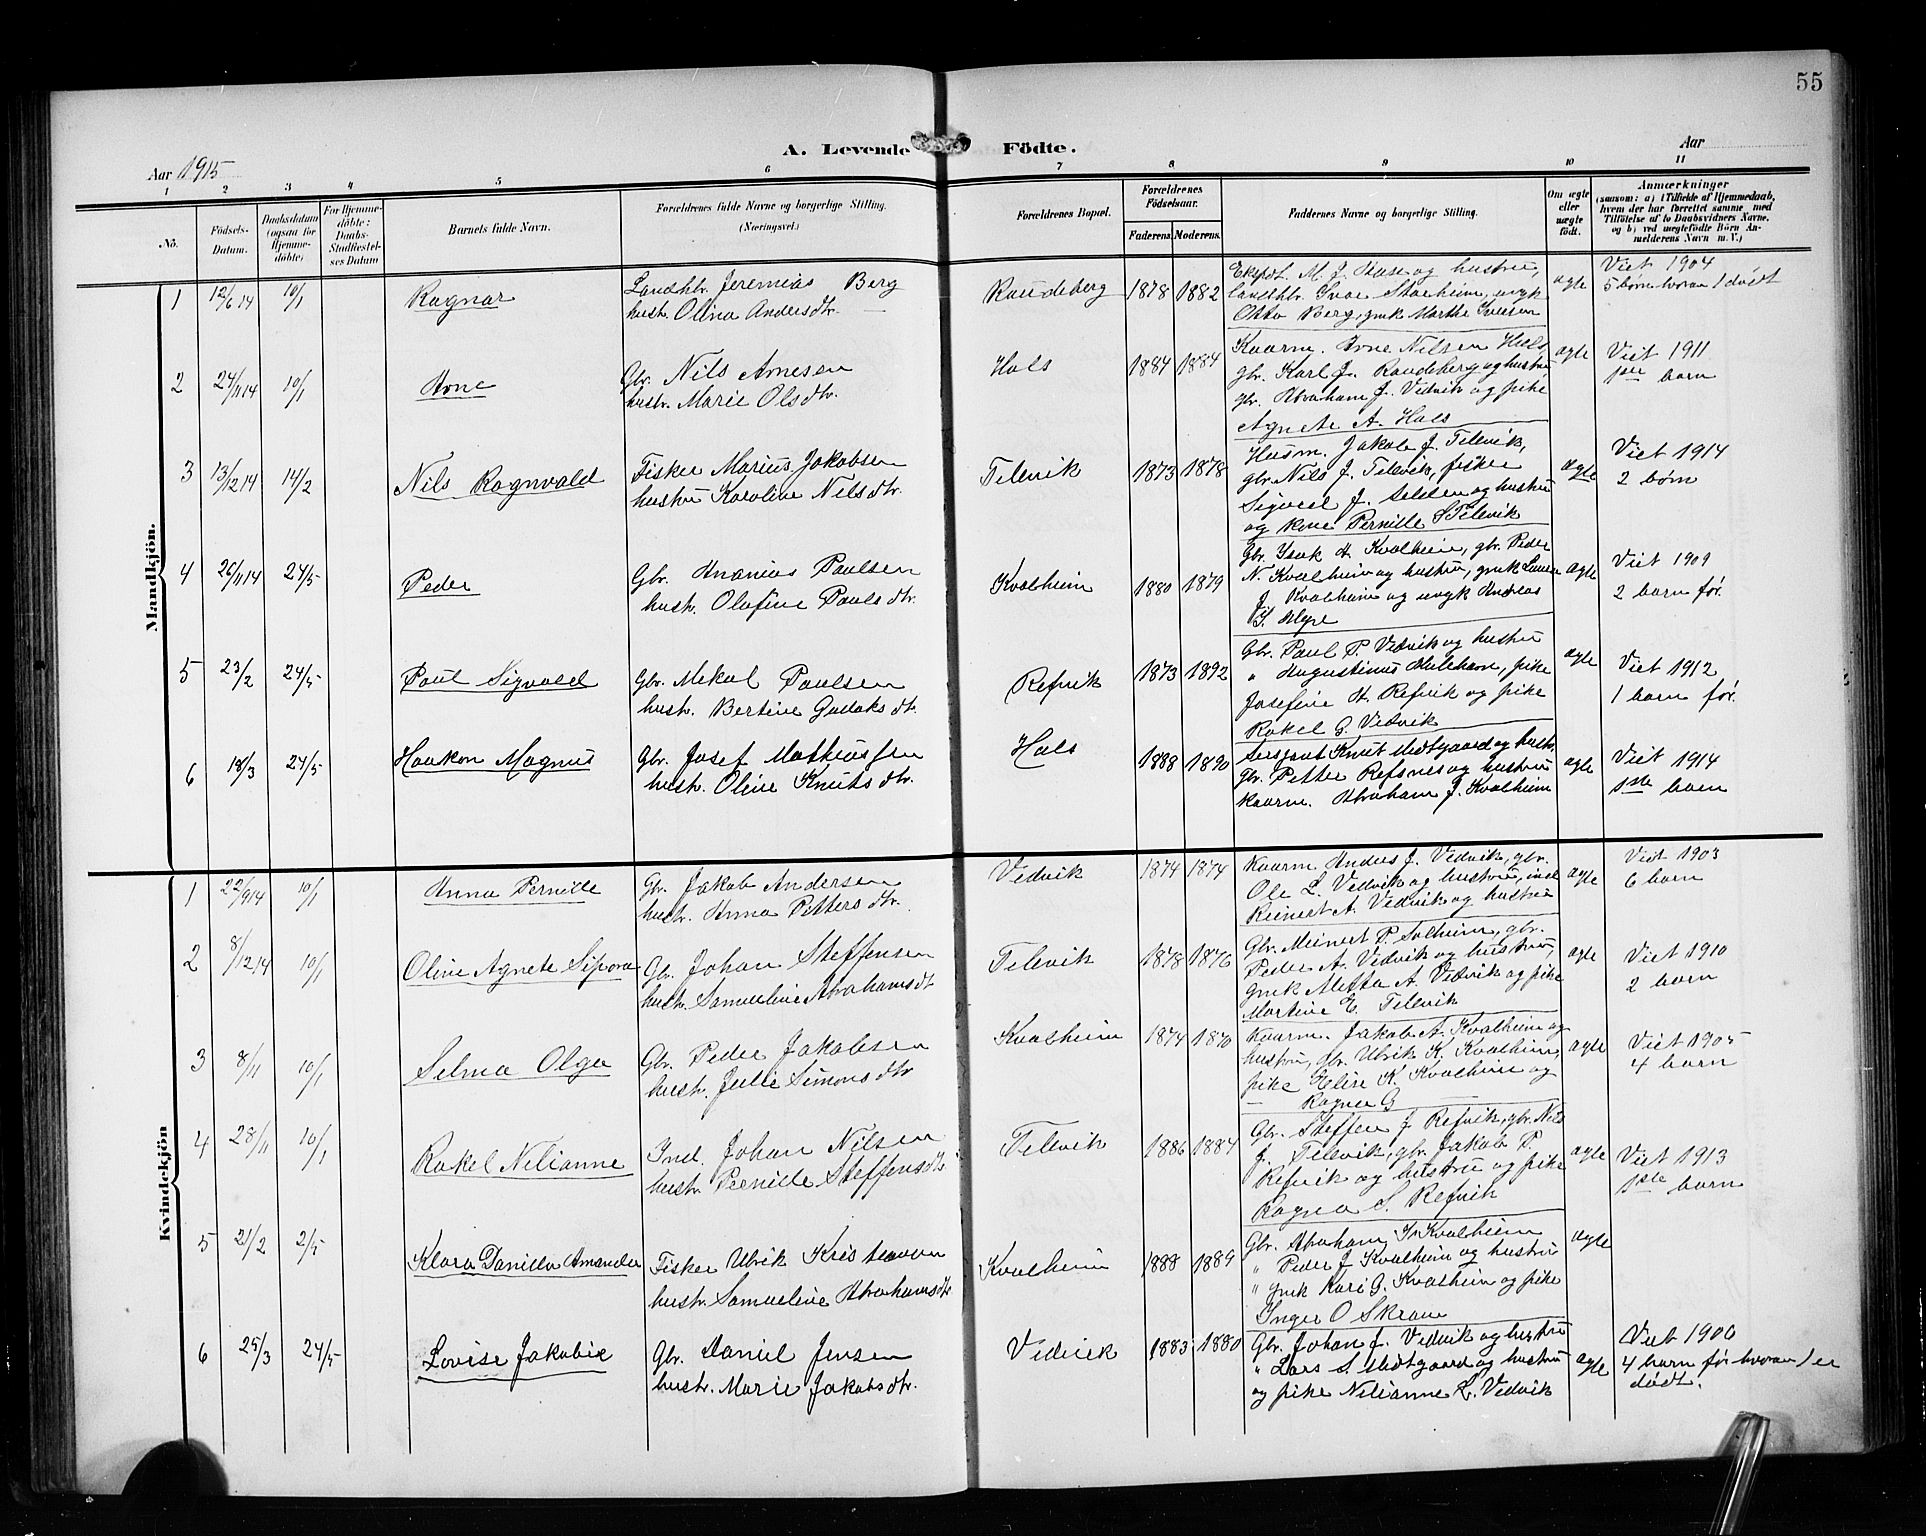 55
A. Levende Födte.
Aar 1915
Aar
1 2 3 4 5 6 7 8 9 10 11
No.
Födsels-Datum.
Daabsdatum (ogsaa for Hjemmedöbte)
For Hjemmedöbte: Daabs-Stadfæstelses Datum
Barnets fulde Navn.
Forældrenes fulde Navne og borgerlige Stilling. (Næringsvei.)
Forældrenes Bopæl.
Forældrenes Födselsaar.
Faderens. Moderens.
Faddernes Navne og borgerlige Stilling.
Om ægte eller uægte födt.
Anmærkninger
(saasom: a) i Tilfælde af Hjemmedaab,
hvem der har forrettet samme med
Tilföielse af to Daabsvidners Navne,
og b) ved uægtefödte Börn An-
melderens Navn m. V.)
Mandkjön.
1 12/6 14 10/1 Ragnar
Landhbr. Jeremias Berg
hustr. Olina Andersdtr.
Raudeberg 1878 1882
Ekspdt. M. J. Hase og hustru,
landhbr. Ivar Starheim, ungk
Otto Berg, gmk Marthe Iversen
ægte
Viet 1904
5 børn hvoraf 1 dødt
2 24/11 14 10/1 Arne
Gbr. Nils Arnesen
hustr. Marie Olsdtr.
Hals 1884 1884
Kaarm. Arne Nilsen Hals
gbr. Karl J. Raudeberg og hustru
gbr. Abraham J. Vedvik og pike
Agnete A. Hals
ægte
Viet 1911
1ste barn
3 13/12 14 14/2 Nils Ragnvald
Fisker Marius Jakobsen
hustru Karoline Nilsdtr.
Tilevik 1873 1878
Husm. Jakob J. Tilevik,
gbr. Nils J. Tilevik, fisker
Sigval J. Selsten og hustru
og kone Pernille S Tilevik
ægte
Viet 1914
2 børn
4 26/11 14 24/5 Peder
Gbr. Ananias Paulsen
hustr. Olafine Paulsdtr.
Kvalheim 1880 1879
Gbr. Isak A Kvalheim, gbr. Peder
N. Kvalheim og hustru, gmk Laura
J. Kvalheim og ungk Andreas
ægte
Viet 1909
2 barn før.
5 23/2 24/5 Paul Sigvald
Gbr. Mekal Paulsen
hustr. Bertine Gullaksdtr.
Refvik 1873 1892
Gbr. Paul P. Vedvik og hustru
" Augustinus Halsham, pike
Josefine A. Refvik og pike
Rakel G. Vedvik
ægte
Viet 1912
1 barn før.
6 18/3 24/5 Haakon Magnus
Gbr. Josef Mathiassen
hustr. Oline Knutsdtr.
Hals 1888 1890
Sergeant Knut Midtgaard og hustr.
Gbr. Petter Refsnes og hustru
kaarm. Abraham J. Kvalheim
ægte
Viet 1914
1ste barn
Kvindekjön
1 22/9 14 10/1 Anna Pernille
Gbr. Jakob Andersen
hustr. Anna Pettersdtr.
Vedvik 1874 1874
Kaarm. Anders J. Vedvik, gbr.
Ole L. Vedvik og hustru, ind.
Reinert A. Vedvik og hustru
ægte
Viet 1903
6 barn
2 8/12 14 10/1 Oline Agnete Sipora
Gbr. Johan Steffensen
hustr. Samueline Abrahamsdtr
Tilevik 1878 1876
Gbr. Meinert P. Solheim, gbr.
Peder A. Vedvik og hustru,
Gmk Metta A. Vedvik og pike
Martine E. Tilevik
ægte
Viet 1910
2 barn
3 8/11 10/1 Selma Olga
Gbr. Peder Jakobsen
hustr. Julie Simonsdtr
Kvalheim 1874 1870
Kaarm. Jakob A. Kvalheim og
hustru, gbr. Ulrik K. Kvalheim,
pike Elise K. Kvalheim og
Ragna G
ægte
Viet 1905
4 barn
4 28/11 10/1 Rakel Nilianne
Ind. Johan Nilsen
hustr. Pernille Steffensdtr
Tilevik 1886 1884
Gbr. Steffen J. Refvik, gbr. Nils
J. Tilevik, gbr. Jakob P.
Refvik og hustru og pike
Ragna S. Refvik
ægte
Viet 1913
1ste barn
5 21/2 2/5 Klara Danilla Amanda
Fisker Ulrik Kristiansen
hustr. Samueline Abrahamsdtr
Kvalheim 1888 1889
Gbr. Abraham Kvalheim
" Peder J Kvalheim og hustru
" gmk Kari G. Kvalheim og pike
Inger O Skram
ægte
6 25/3 24/5 Lovise Jakobie
Gbr. Daniel Jensen
hustr. Marie Jakobsdtr.
Vedvik 1883 1880
Gbr. Johan J. Vedvik og hustru
" Lars S. Midtgaard og hustru
og pike Nilianne L. Vedvik
ægte
Viet 1906
4 barn før hvoraf 1 er
dødt.